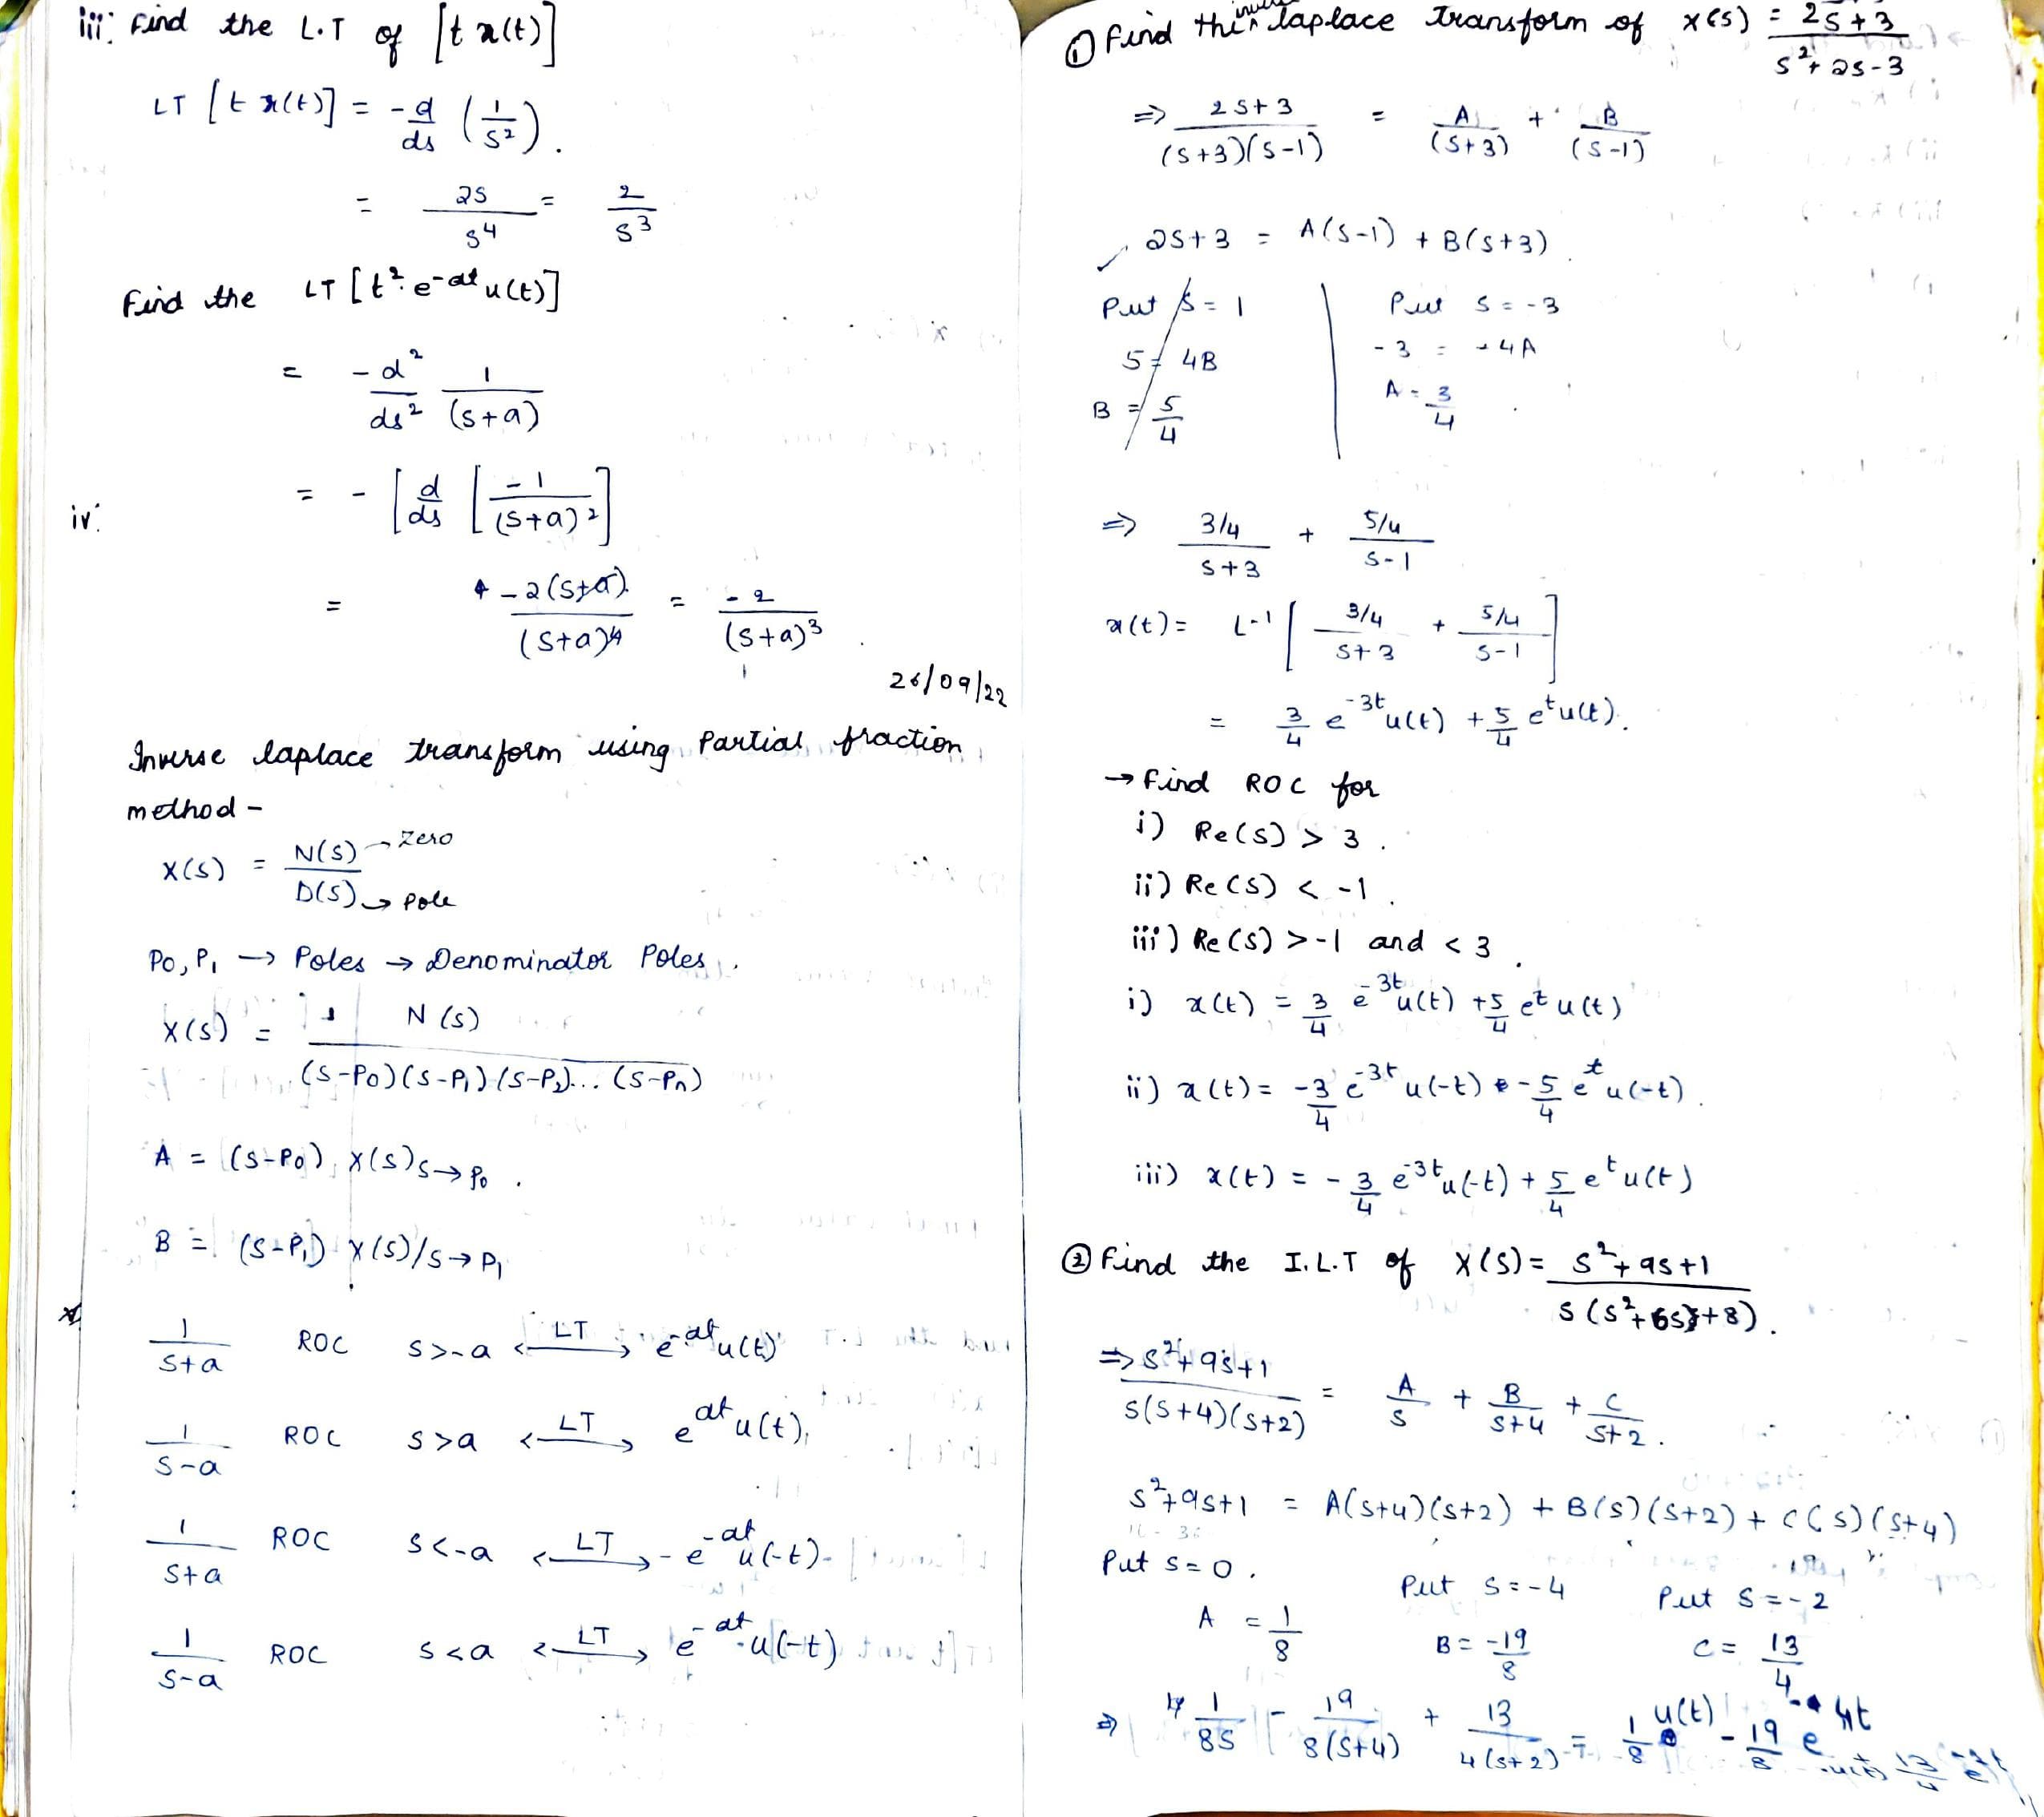 iii: Find the L.T of [t x(t)]
LT [t x(t)] = -d/ds (1/s²).
= 2s/s⁴ = 2/s³
Find the LT [t². e^-at u(t)]
= -d²/ds² 1/(s+a)
iv: = - [d/ds [-1/(s+a)²]
= -2(s+a)/(s+a)⁴ = -2/(s+a)³.
26/09/22
Inverse laplace transform using Partial fraction
method -
X(s) = N(s) → Zero / D(s) → Pole
P0, P1 → Poles → Denominator Poles.
X(s) = N(s) / (s-P0)(s-P1)(s-P2)... (s-Pn)
A = (s-P0) X(s) s→P0.
B = (s-P1) X(s)/s→P1
1/s+a ROC s>-a <—LT—> e^-at u(t)
1/s-a ROC s>a <—LT—> e^at u(t)
1/s+a ROC s<-a <—LT—> -e^-at u(-t)
1/s-a ROC s<a <—LT—> e^-at u(-t)
① Find the inverse laplace transform of x(s) = 2s+3 / s²+2s-3
⇒ 2s+3 / (s+3)(s-1) = A/(s+3) + B/(s-1)
2s+3 = A(s-1) + B(s+3)
Put s = 1 | Put s = -3
5 = 4B | -3 = -4A
B = 5/4 | A = 3/4
⇒ 3/4 / s+3 + 5/4 / s-1
x(t) = L^-1 [ 3/4 / s+3 + 5/4 / s-1 ]
= 3/4 e^-3t u(t) + 5/4 e^t u(t).
→ Find ROC for
i) Re(s) > 3.
ii) Re(s) < -1.
iii) Re(s) > -1 and < 3.
i) x(t) = 3/4 e^-3t u(t) + 5/4 e^t u(t)
ii) x(t) = -3/4 e^-3t u(-t) - 5/4 e^t u(-t).
iii) x(t) = -3/4 e^-3t u(-t) + 5/4 e^t u(t)
② Find the I.L.T of X(s) = s²+9s+1 / s(s²+6s+8).
⇒ s²+9s+1 / s(s+4)(s+2) = A/s + B/s+4 + C/s+2.
s²+9s+1 = A(s+4)(s+2) + B(s)(s+2) + C(s)(s+4)
Put s=0. Put s=-4 Put s=-2
A = 1/8 B = -19/8 C = 13/4
⇒ 1/8s - 19/8(s+4) + 13/4(s+2) = 1/8 u(t) - 19/8 e^-4t u(t) + 13/4 e^-2t